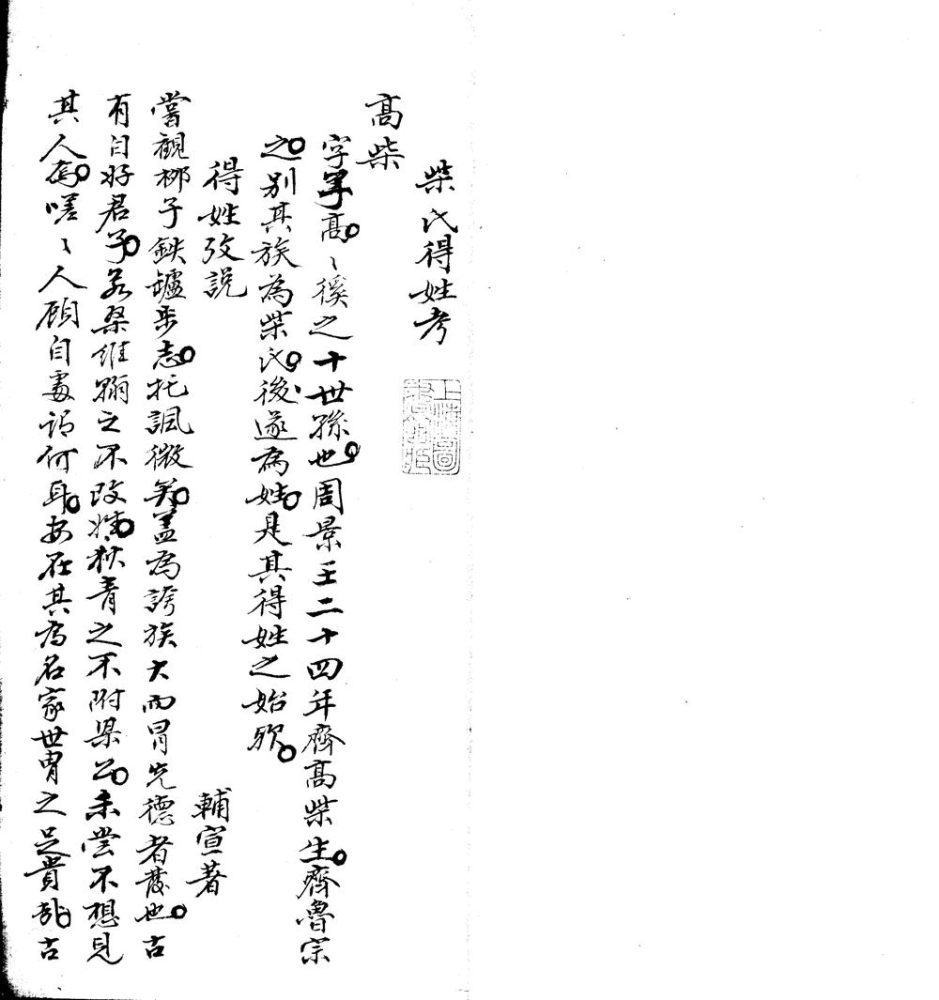 柴氏得姓考
上海圖書館藏
高柴
字子高。〻徯之十世孫也。周景王二十四年齊高柴生。齊魯宗
之。別其族為柴氏。後遂為姓。是其得姓之始歟。
得姓攷説
輔宣著
嘗觀柳子鉄罏步志。托諷微矣。蓋為誇族大而冒先德者發也。古
有自好君子。若桑維翰之不改姓。狄青之不附梁公。未嘗不想見
其人焉。嗟〻人顧自處謂何耳。安在其為名家世冑之足貴哉。古